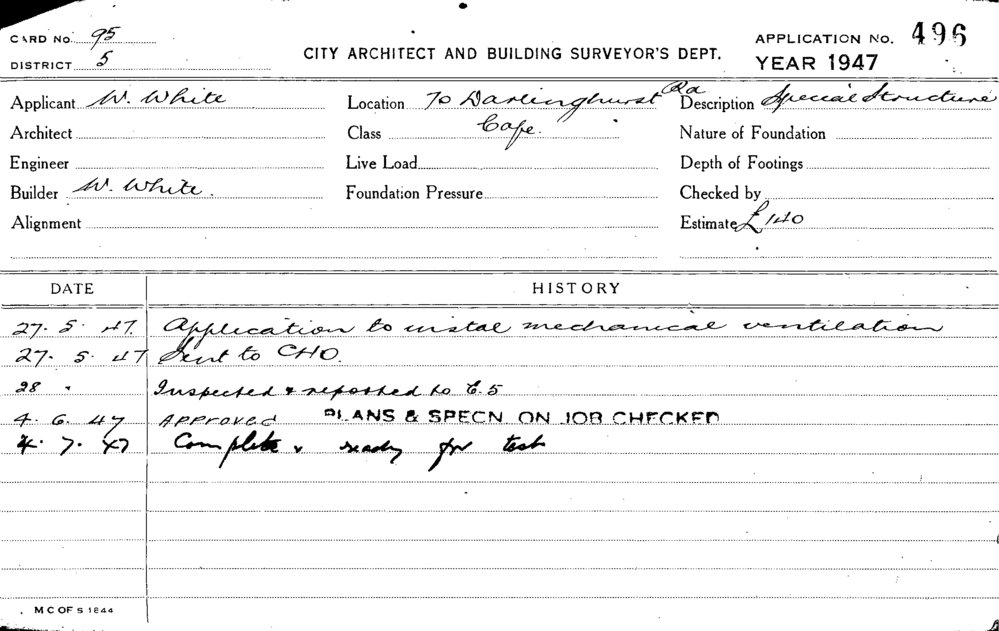 CARD No. 95
DISTRICT 5
CITY ARCHITECT AND BUILDING SURVEYOR'S DEPT.
APPLICATION No. 496
YEAR 1947
Applicant W. White
Location 70 Darlinghurst Rd
Description Special Structure
Architect
Class Cafe.
Nature of Foundation
Engineer
Live Load
Depth of Footings
Builder W. White.
Foundation Pressure
Checked by
Alignment
Estimate £140
DATE HISTORY
27. 5. 47. Application to instal mechanical ventilation
27. 5. 47 Sent to CHO.
28 " Inspected & reported to C.5
4. 6. 47 Approved PLANS & SPECN ON JOB CHECKED
4. 7. 47 Complete & ready for test
M C OF S 1844